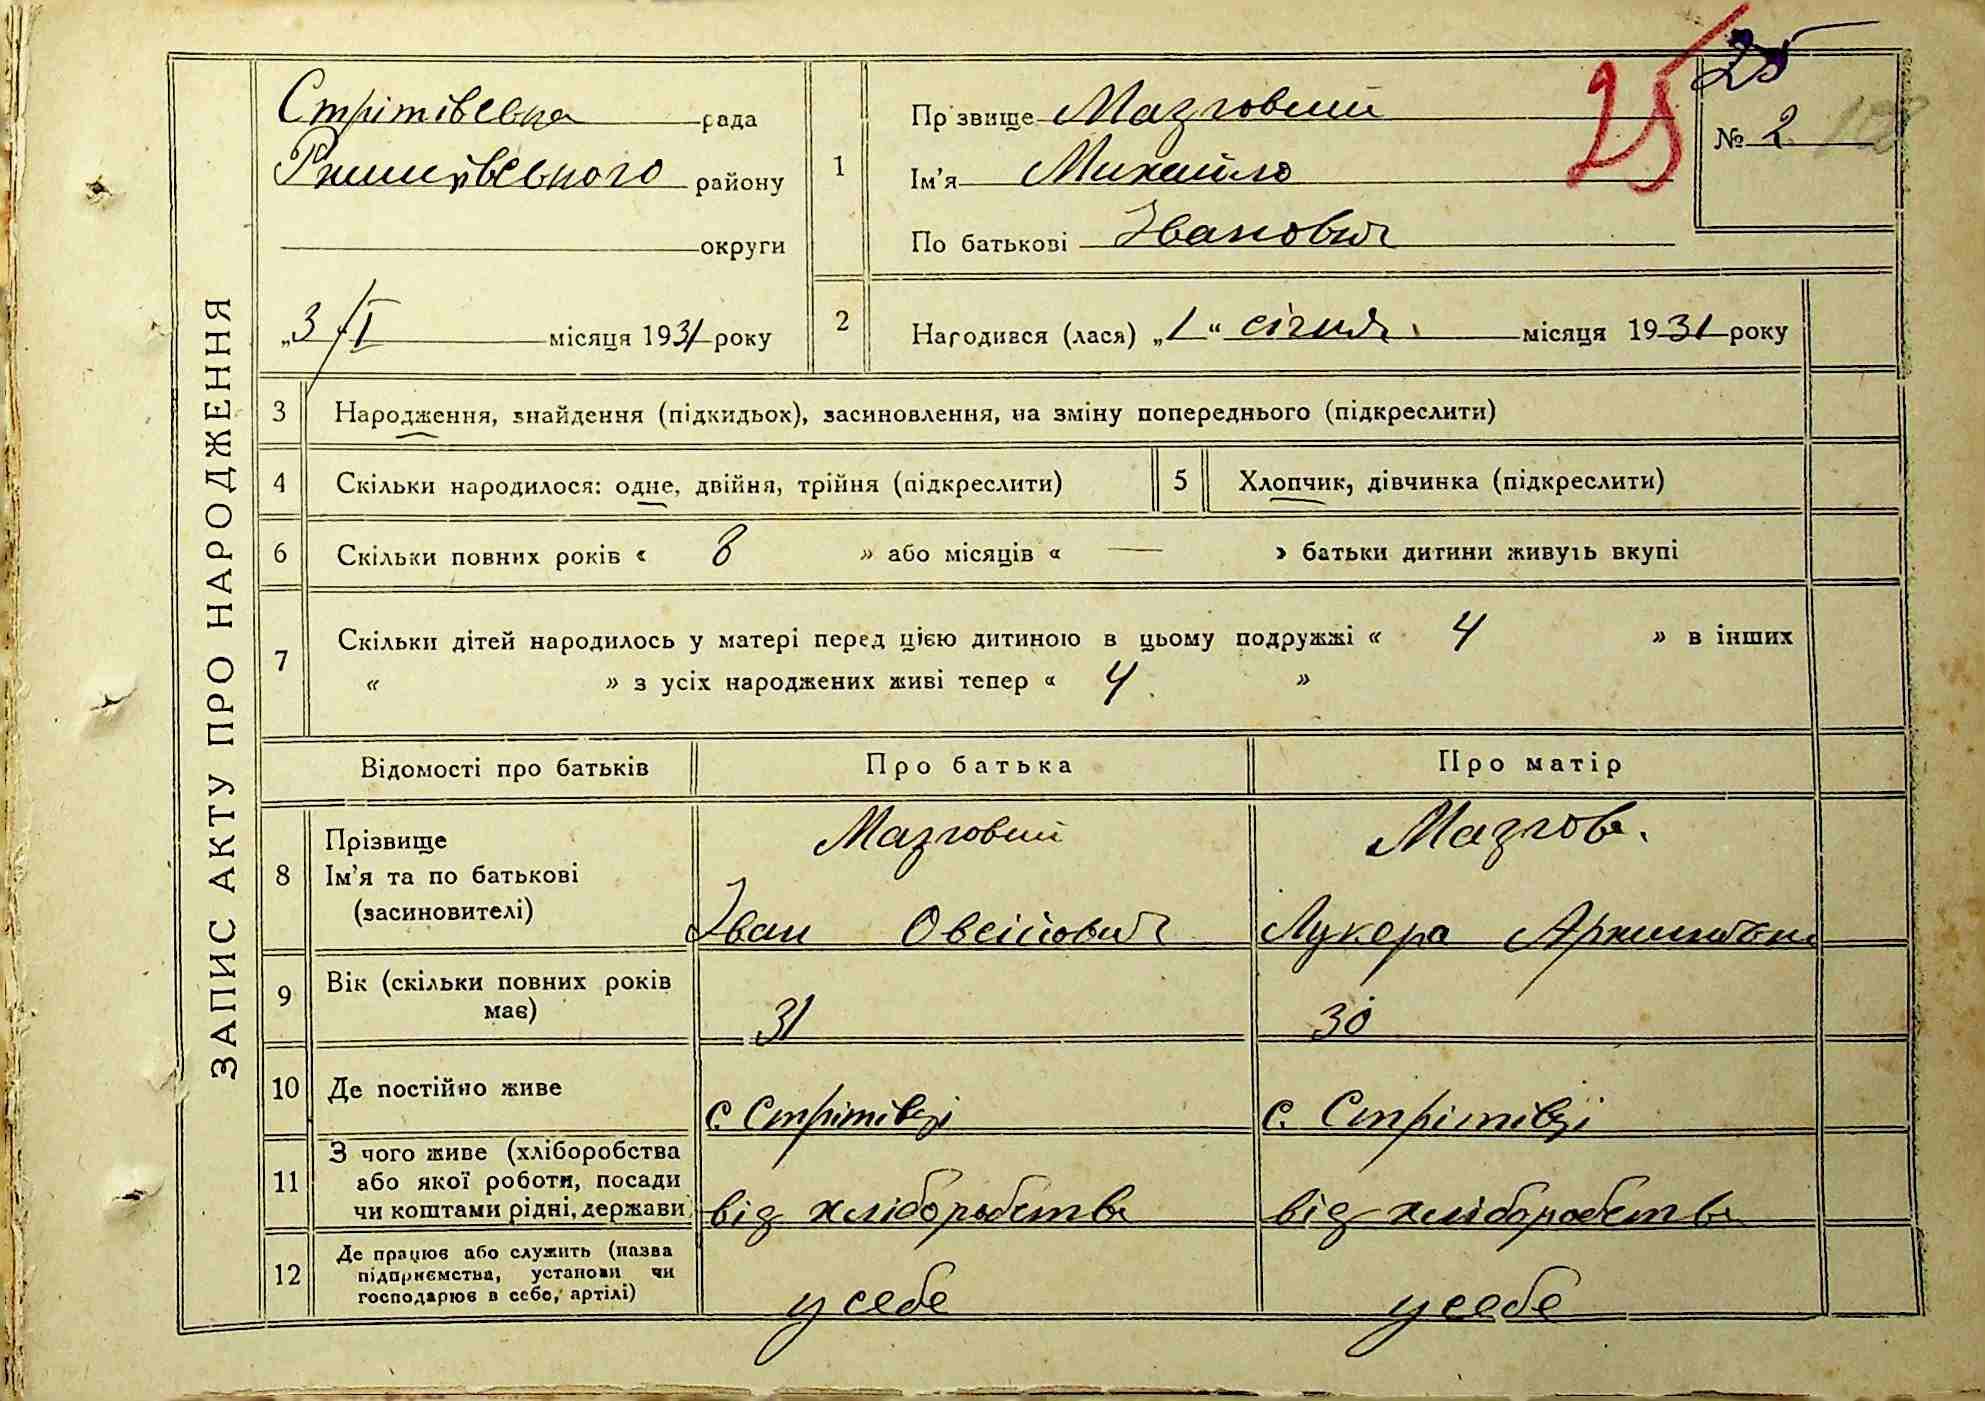 25
25
ЗАПИС АКТУ ПРО НАРОДЖЕННЯ
Стрітівська рада
Ржищівського району
округи
„3/I місяця 1931 року
1
Прізвище Мазговий
Ім'я Михайло
По батькові Іванович
№ 2
2
Народився (лася) „1“ січня місяця 1931 року
3 Народження, знайдення (підкидьок), засиновлення, на зміну попереднього (підкреслити)
4 Скільки народилося: одне, двійня, трійня (підкреслити)
5 Хлопчик, дівчинка (підкреслити)
6 Скільки повних років « 8 » або місяців « — » батьки дитини живуть вкупі
7 Скільки дітей народилось у матері перед цією дитиною в цьому подружжі « 4 » в інших
« » з усіх народжених живі тепер « 4 »
Відомості про батьків Про батька Про матір
8 Прізвище
Ім'я та по батькові
(засиновителі)
Мазговий
Іван Овсійович
Мазгов.
Лукера
9 Вік (скільки повних років
має)
31
30
10 Де постійно живе
с. Стрітівці
с. Стрітівці
11 З чого живе (хліборобства
або якої роботи, посади
чи коштами рідні, держави
від хліборобства
від хліборобства
12 Де працює або служить (назва
підприємства, установи чи
господарює в себе, артілі)
у себе
у себе